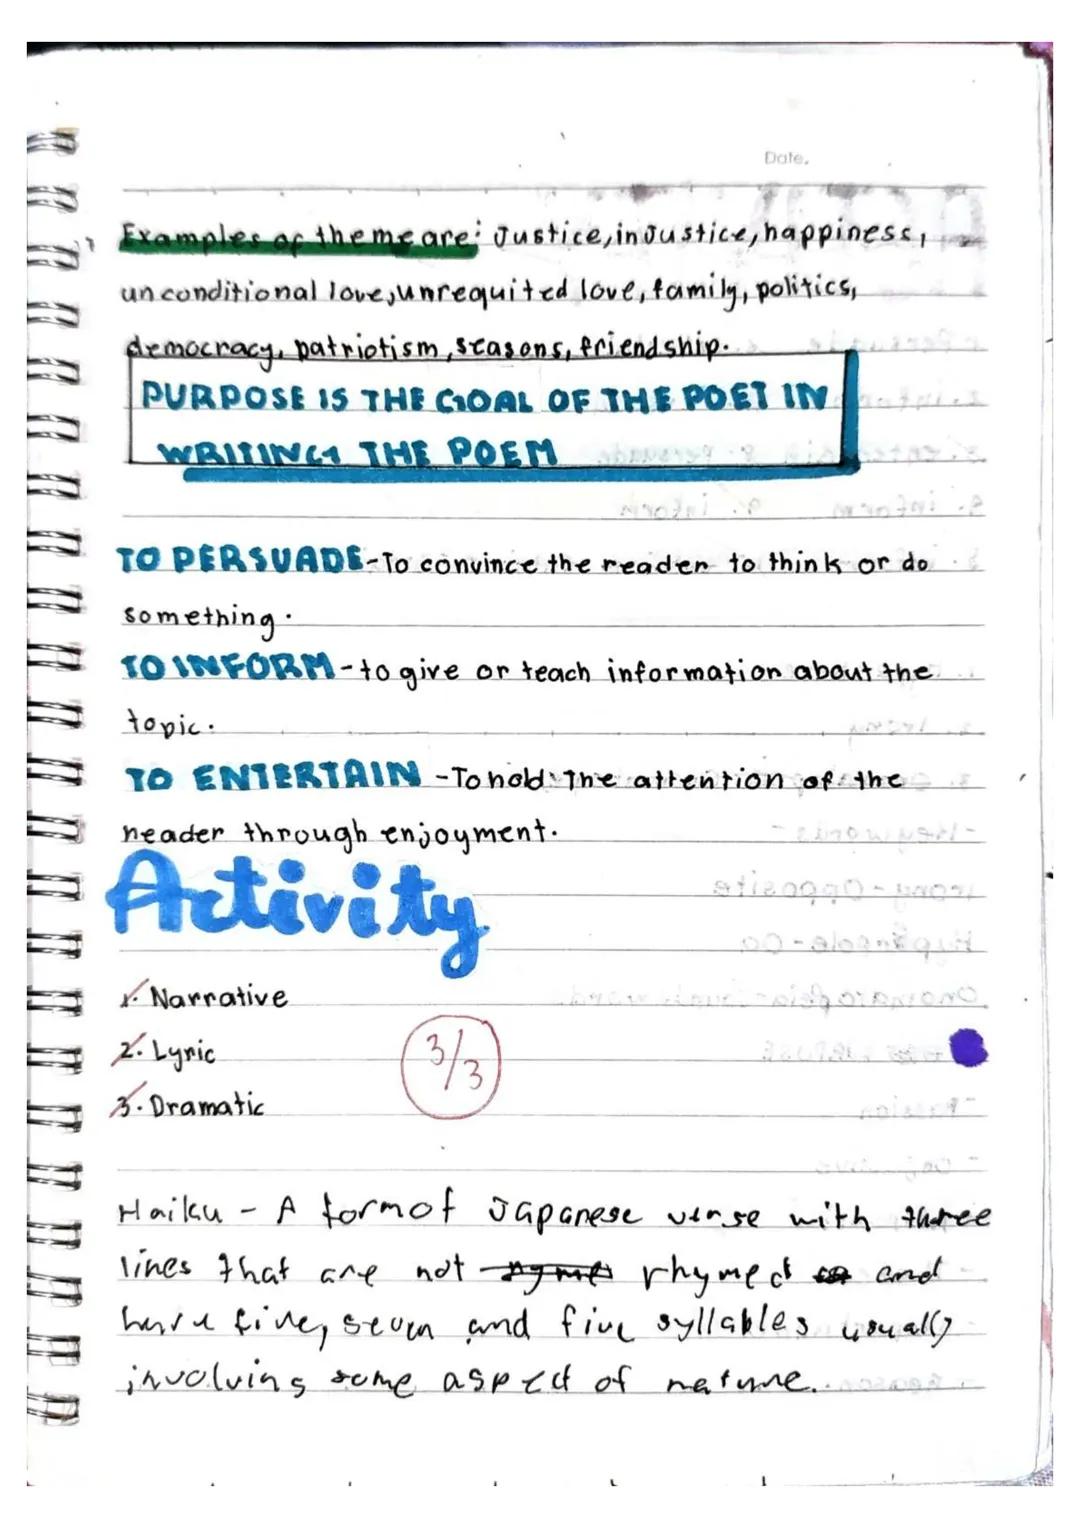 Date.
Examples of theme are: Justice, injustice, happiness,
unconditional love, unrequited love, family, politics,
democracy, patriotism, seasons, friendship.
PURPOSE IS THE GOAL OF THE POET IN
WRITING THE POEM
TO PERSUADE - To convince the reader to think or do
something.
TO INFORM - to give or teach information about the
topic.
TO ENTERTAIN - To hold the attention of the
reader through enjoyment.
Activity
1. Narrative
2. Lyric
3. Dramatic
3/3
Haiku - A form of Japanese verse with three
lines that are not rhymed and
have five, seven and five syllables usually
involving some aspect of nature.